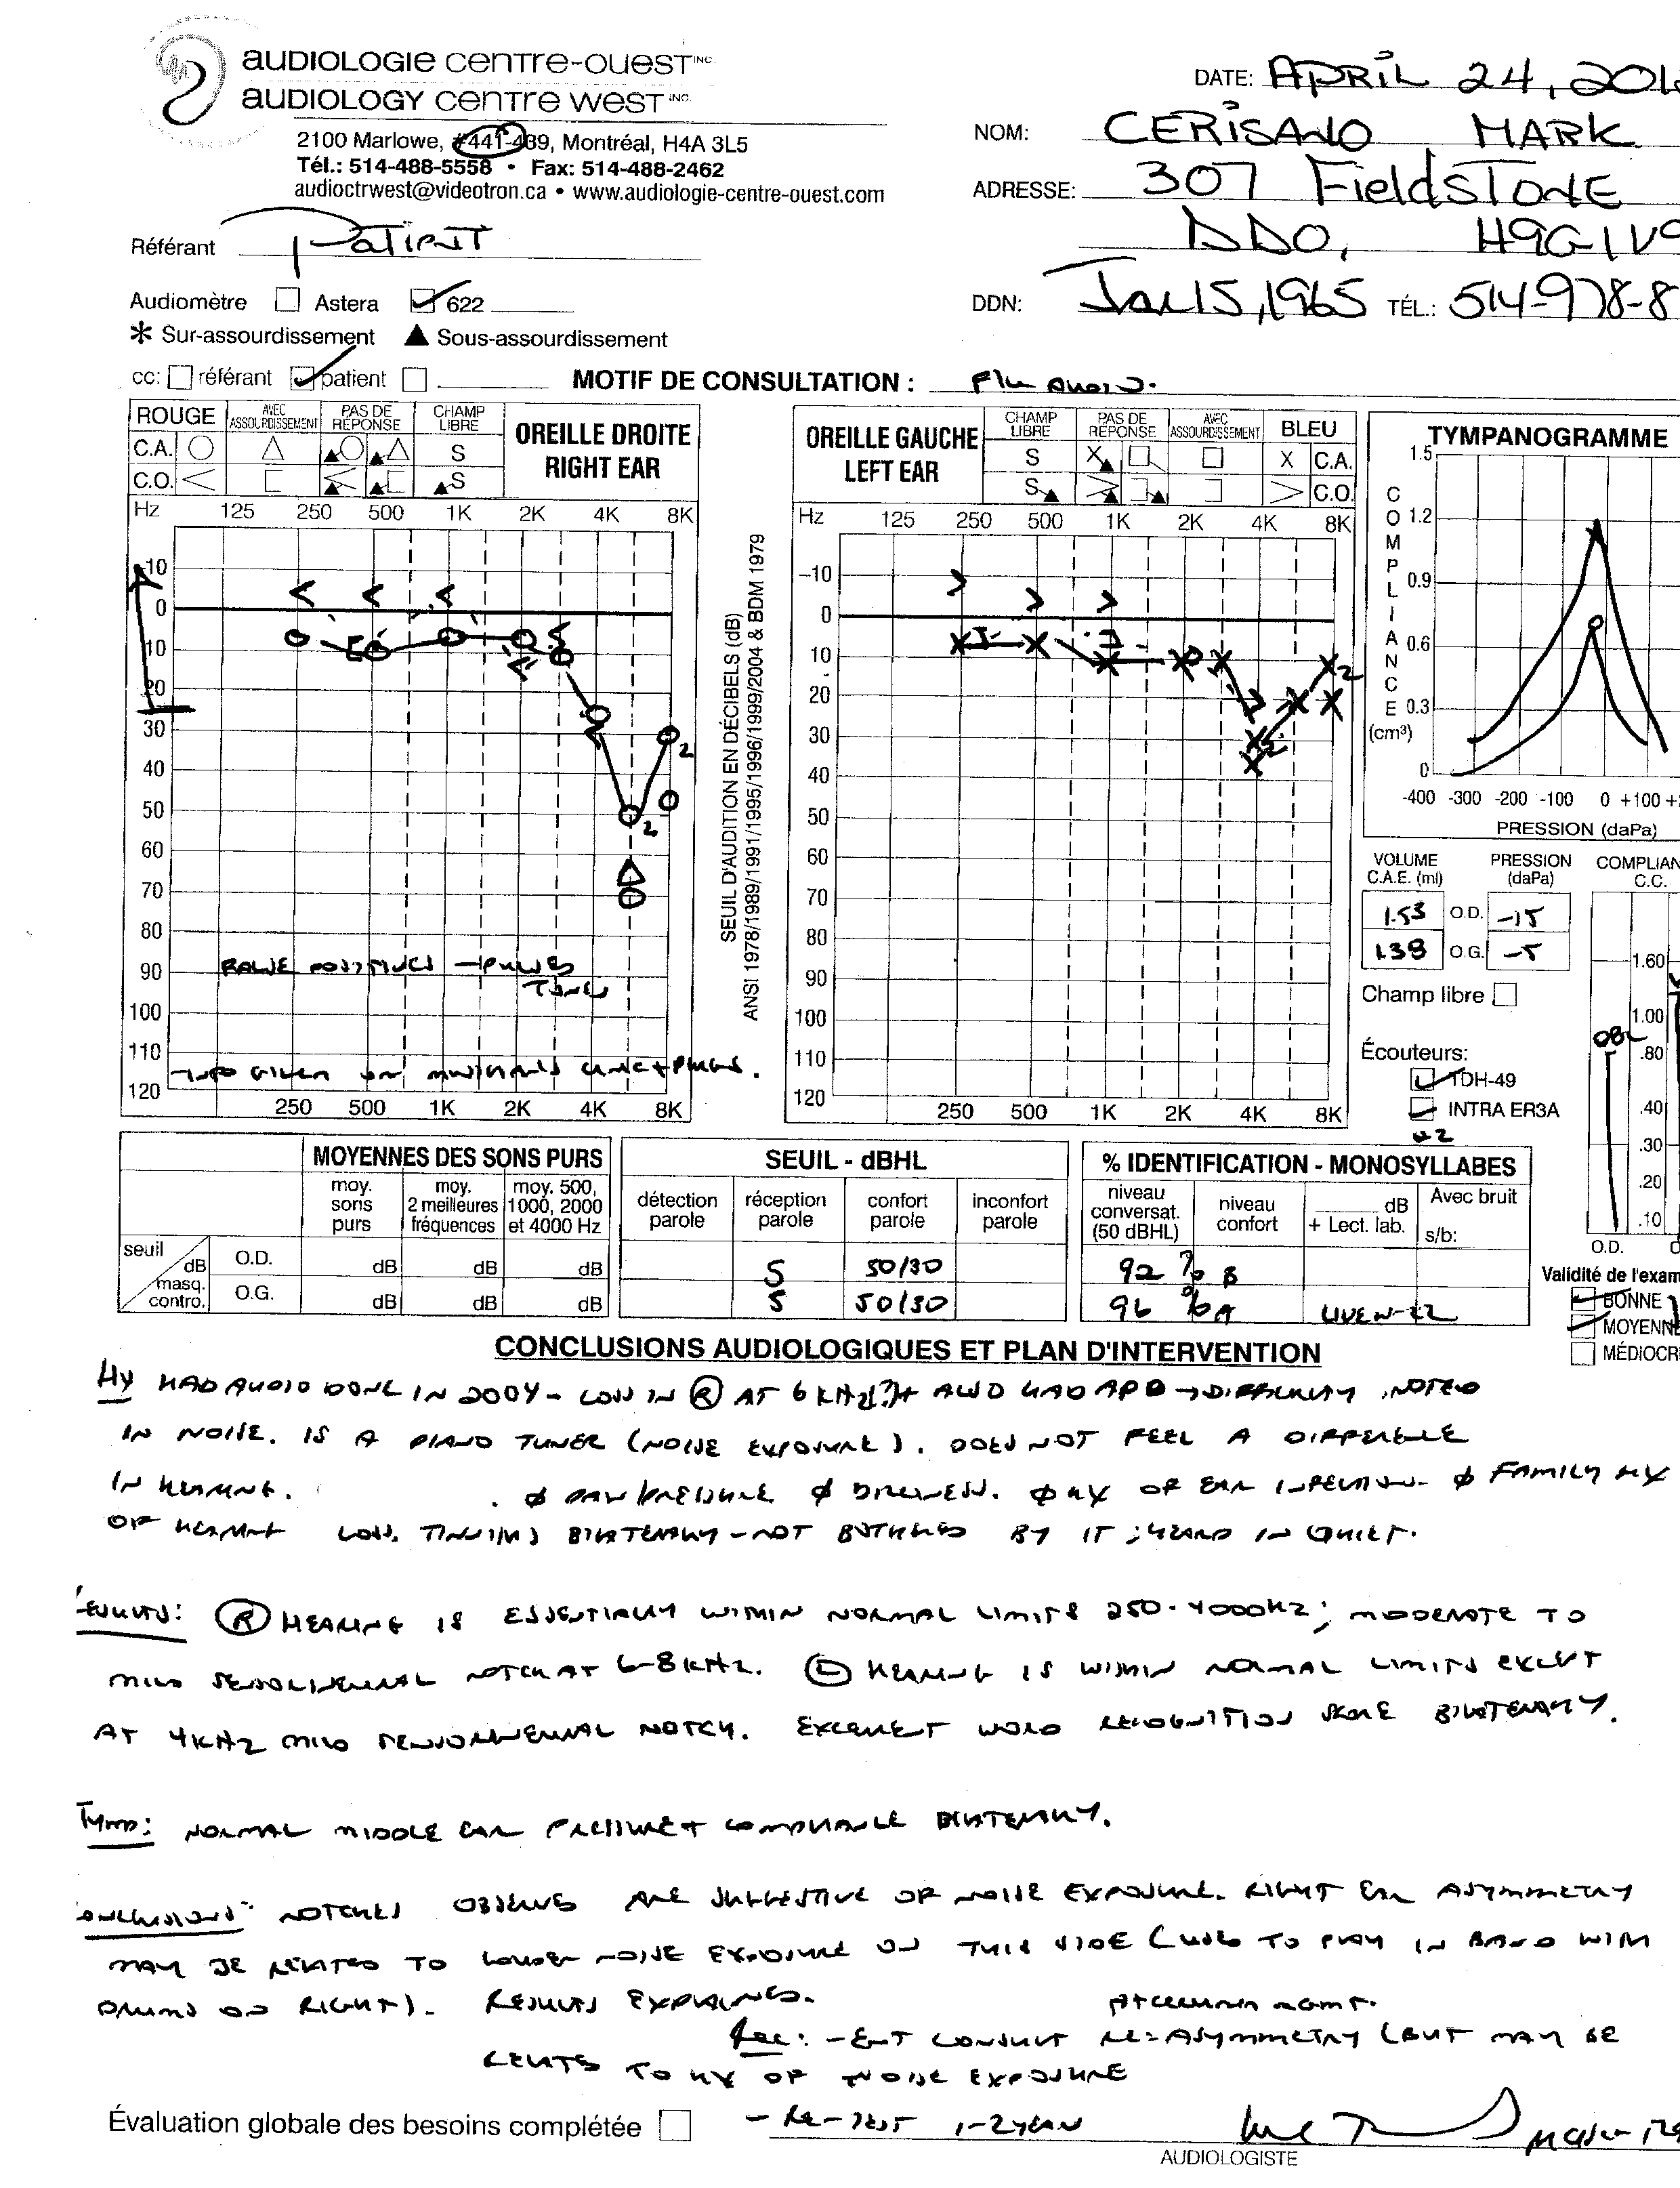 AUDIOLOGIE CENTRE-OUEST INC.
AUDIOLOGY CENTRE WEST INC.
2100 Marlowe, #441-439, Montréal, H4A 3L5
Tél.: 514-488-5558 • Fax: 514-488-2462
audioctrwest@videotron.ca • www.audiologie-centre-ouest.com
DATE: APRIL 24, 201
NOM: CERISANO, MARK
ADRESSE: 307 FieldSTONE
DDO, H9G-1V9
DDN: Jan 15, 1965 TÉL.: 514-978-8
Référant PATIENT
Audiomètre Astera 622
* Sur-assourdissement ▲ Sous-assourdissement
cc: référant patient
MOTIF DE CONSULTATION : F/U AUDIO.
ROUGE AVEC ASSOURDISSEMENT PAS DE RÉPONSE CHAMP LIBRE
C.A. S
C.O. S
OREILLE DROITE
RIGHT EAR
Hz 125 250 500 1K 2K 4K 8K
10
0
10
20
30
40
50
60
70
80
90
100
110
120
2
2
FALSE POSITIVES → PULSED
TONES
INFO GIVEN ON MUSICIANS PLUGS.
250 500 1K 2K 4K 8K
SEUIL D'AUDITION EN DÉCIBELS (dB)
ANSI 1978/1989/1991/1995/1996/1999/2004 & BDM 1979
OREILLE GAUCHE
LEFT EAR
CHAMP LIBRE PAS DE RÉPONSE AVEC ASSOURDISSEMENT BLEU
S X C.A.
S C.O.
Hz 125 250 500 1K 2K 4K 8K
-10
0
10
20
30
40
50
60
70
80
90
100
110
120
2
2
250 500 1K 2K 4K 8K
TYMPANOGRAMME
COMPLIANCE (cm³)
1.5
1.2
0.9
0.6
0.3
0
-400 -300 -200 -100 0 +100
PRESSION (daPa)
VOLUME C.A.E. (ml) PRESSION (daPa) COMPLIAN
C.C.
1.53 O.D. -15
1.38 O.G. -5
Champ libre
Écouteurs:
TDH-49
INTRA ER3A
#2
1.60
1.00
.80
.40
.30
.20
.10
O.D.
MOYENNES DES SONS PURS
moy. sons purs
moy. 2 meilleures fréquences
moy. 500, 1000, 2000 et 4000 Hz
seuil dB O.D. dB dB dB
masq. contro. O.G. dB dB dB
SEUIL - dBHL
détection parole
réception parole
confort parole
inconfort parole
5 50/30
5 50/30
% IDENTIFICATION - MONOSYLLABES
niveau conversat. (50 dBHL)
niveau confort
dB + Lect. lab.
Avec bruit s/b:
92 % B
96 % A
Validité de l'exam
BONNE
MOYENNE
MÉDIOCR
CONCLUSIONS AUDIOLOGIQUES ET PLAN D'INTERVENTION
Hx HAD AUDIO DONE IN 2004 - LOSS IN (R) AT 6 KHZ? ALSO HAD APD → DIFFICULTY NOTED
IN NOISE. IS A PIANO TUNER (NOISE EXPOSURE). DOES NOT FEEL A DIFFERENCE
IN HEARING. Ø PAIN/PRESSURE Ø DIZZINESS. Ø HX OF EAR INFECTION. Ø FAMILY HX
OF HEARING LOSS. TINNITUS BILATERALLY - NOT BOTHERED BY IT; HEARD IN QUIET.
RESULTS: (R) HEARING IS ESSENTIALLY WITHIN NORMAL LIMITS 250-4000HZ; MODERATE TO
MILD SENSORINEURAL NOTCH AT 6-8KHZ. (L) HEARING IS WITHIN NORMAL LIMITS EXCEPT
AT 4KHZ MILD SENSORINEURAL NOTCH. EXCELLENT WORD RECOGNITION SCORE BILATERALLY.
TYMP: NORMAL MIDDLE EAR PRESSURE + COMPLIANCE BILATERALLY.
CONCLUSIONS: NOTCHES OBSERVED ARE SUGGESTIVE OF NOISE EXPOSURE. RIGHT EAR ASYMMETRY
MAY BE RELATED TO LOUDER NOISE EXPOSURE ON THIS SIDE (USED TO PLAY IN BAND WITH
DRUMS ON RIGHT). RESULTS EXPLAINED.
Rec: - ENT CONSULT RE: ASYMMETRY (BUT MAY BE
RELATED TO HX OF NOISE EXPOSURE
- RE-TEST 1-2 YEAR
Évaluation globale des besoins complétée
AUDIOLOGISTE